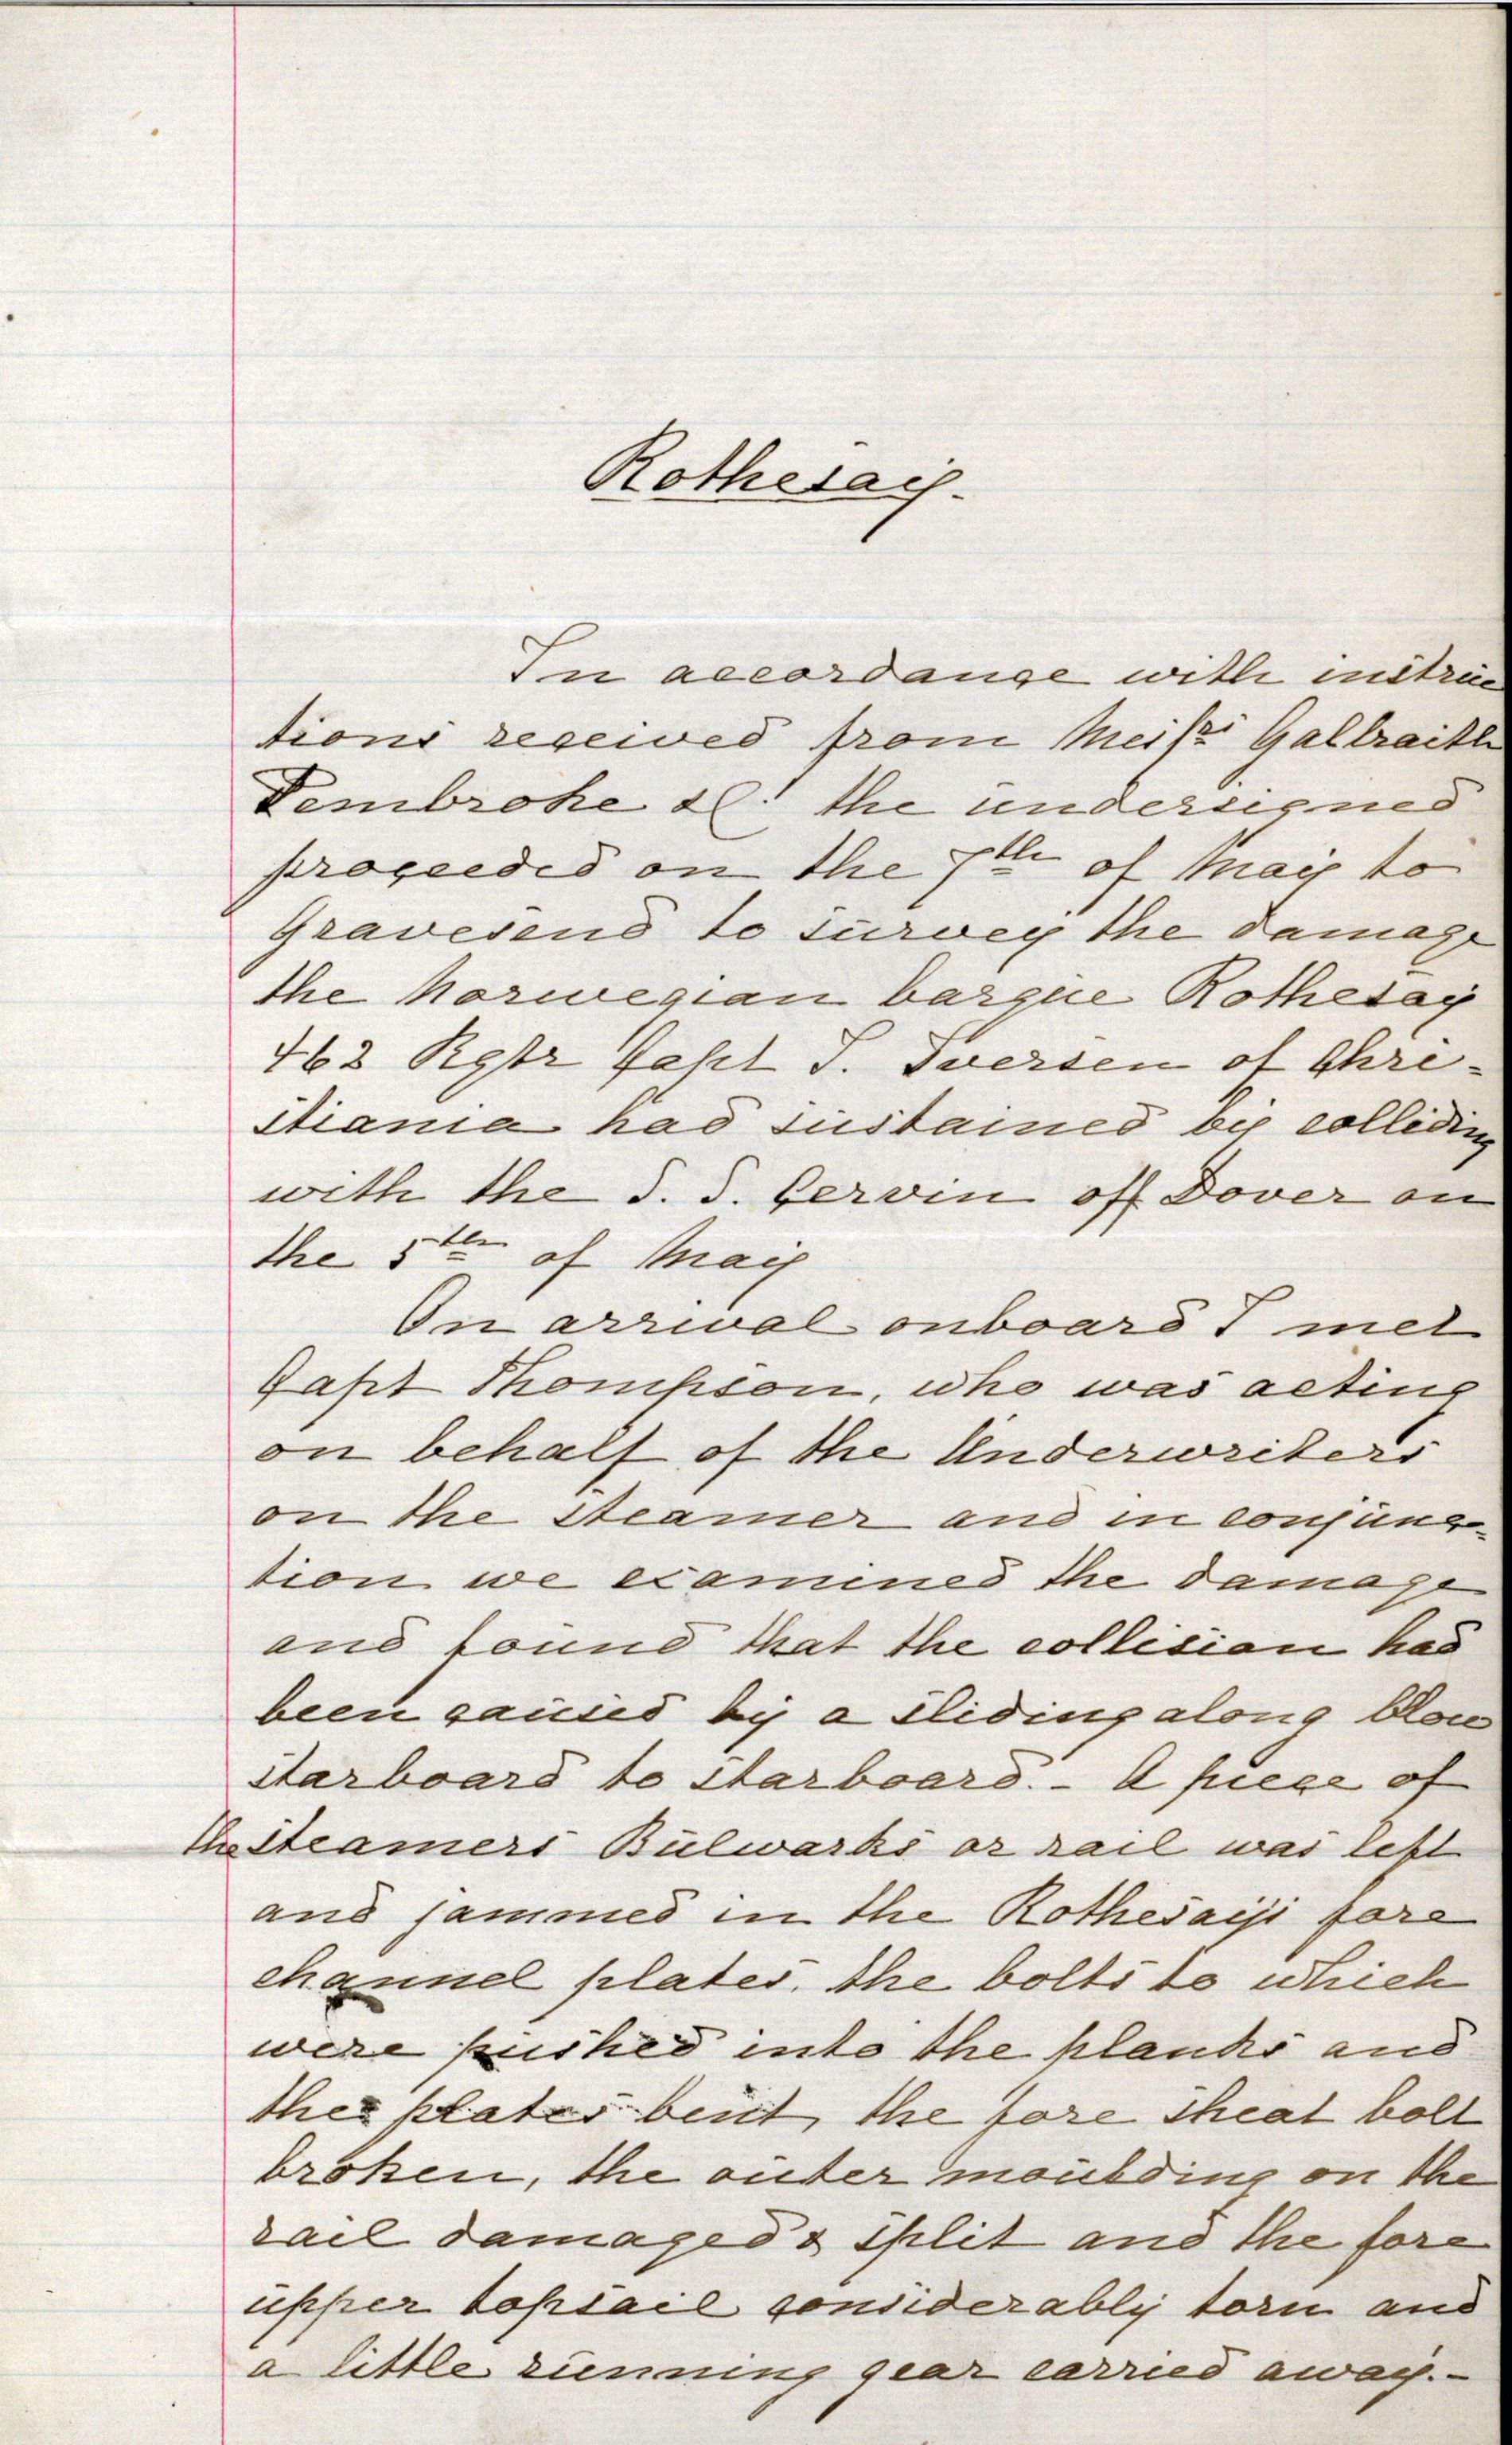 Rothesay.
In accordance with instruc
tions received from Messrs Galbraith
Pembroke &c. the undersigned
proceeded on the 7th of May to
Gravesend to survey the damage
the Norwegian barque Rothesay
462 Rgtr Capt T. Iversen of Chri-
stiania had sustained by colliding
with the S. S. Cervin off Dover on
the 5th of May
On arrival onboard I met
Capt Thompson, who was acting
on behalf of the Underwriters
on the steamer and in conjunc-
tion we examined the damage
and found that the collision had
been caused by a sliding along blow
starboard to starboard. - A piece of
the steamers Bulwarks or rail was left
and jammed in the Rothesays fore
channel plates, the bolts to which
were pushed into the planks and
the plates bent, the fore sheat bolt
broken, the outer moulding on the
rail damaged & split and the fore
upper topsail considerably torn and
a little running gear carried away. -